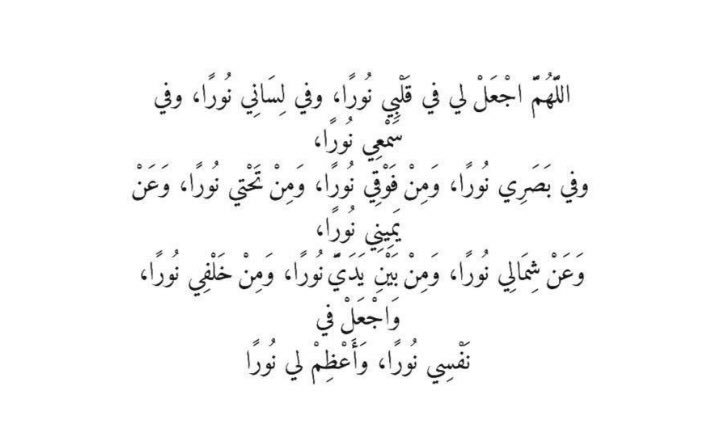 اللَّهُمَّ اجْعَلْ لي في قَلْبِي نُورًا، وفي لِسَانِي نُورًا، وفي
سَمْعِي نُورًا،
وفي بَصَرِي نُورًا، وَمِنْ فَوْقِي نُورًا، وَمِنْ تَحْتي نُورًا، وَعَنْ
يَمِينِي نُورًا،
وَعَنْ شِمَالِي نُورًا، وَمِنْ بَيْنِ يَدَيَّ نُورًا، وَمِنْ خَلْفِي نُورًا،
وَاجْعَلْ في
نَفْسِي نُورًا، وَأَعْظِمْ لي نُورًا